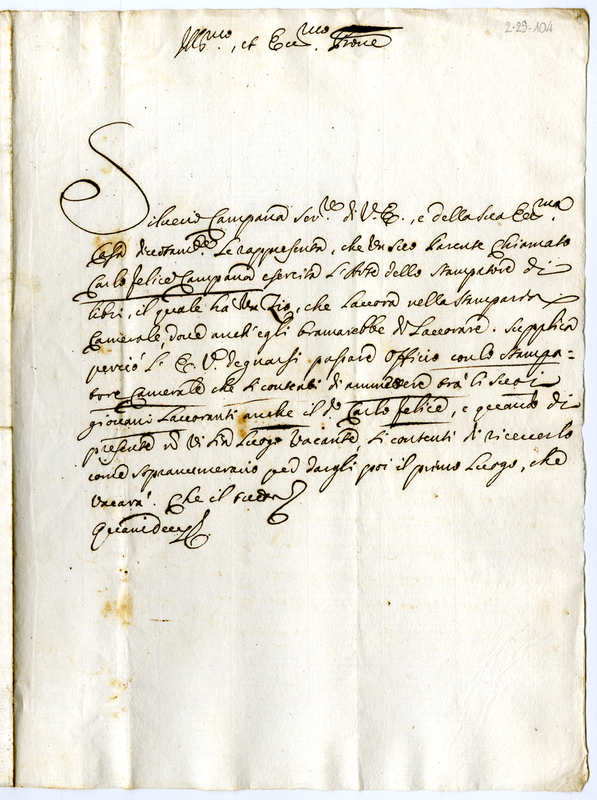 2-29-104
Ill.mo, et Ecc.mo Prone
Silverio Campana Ser.re di V. E., e della sua Ecc.ma
Casa Le rappresenta, che un suo Parente Chiamato
Carlo Felice Campana esercita l'Arte dello Stampatore di
libri, il quale ha un Zio, che lavora nella Stamparia
Camerale, dove anch'egli bramarebbe di Lavorare. Supplica
perciò l'E. V. degnarsi passare Officio con lo Stampa=
tore Camerale che si contenti di ammettere trà li suoi
giovani Lavoranti anche il do. Carlo Felice, e quando di
presente non vi sia Luogo vacante si contenti di riceverlo
come sopranumerario per dargli poi il primo Luogo, che
vacarà. Che il tutto
Quam Deus